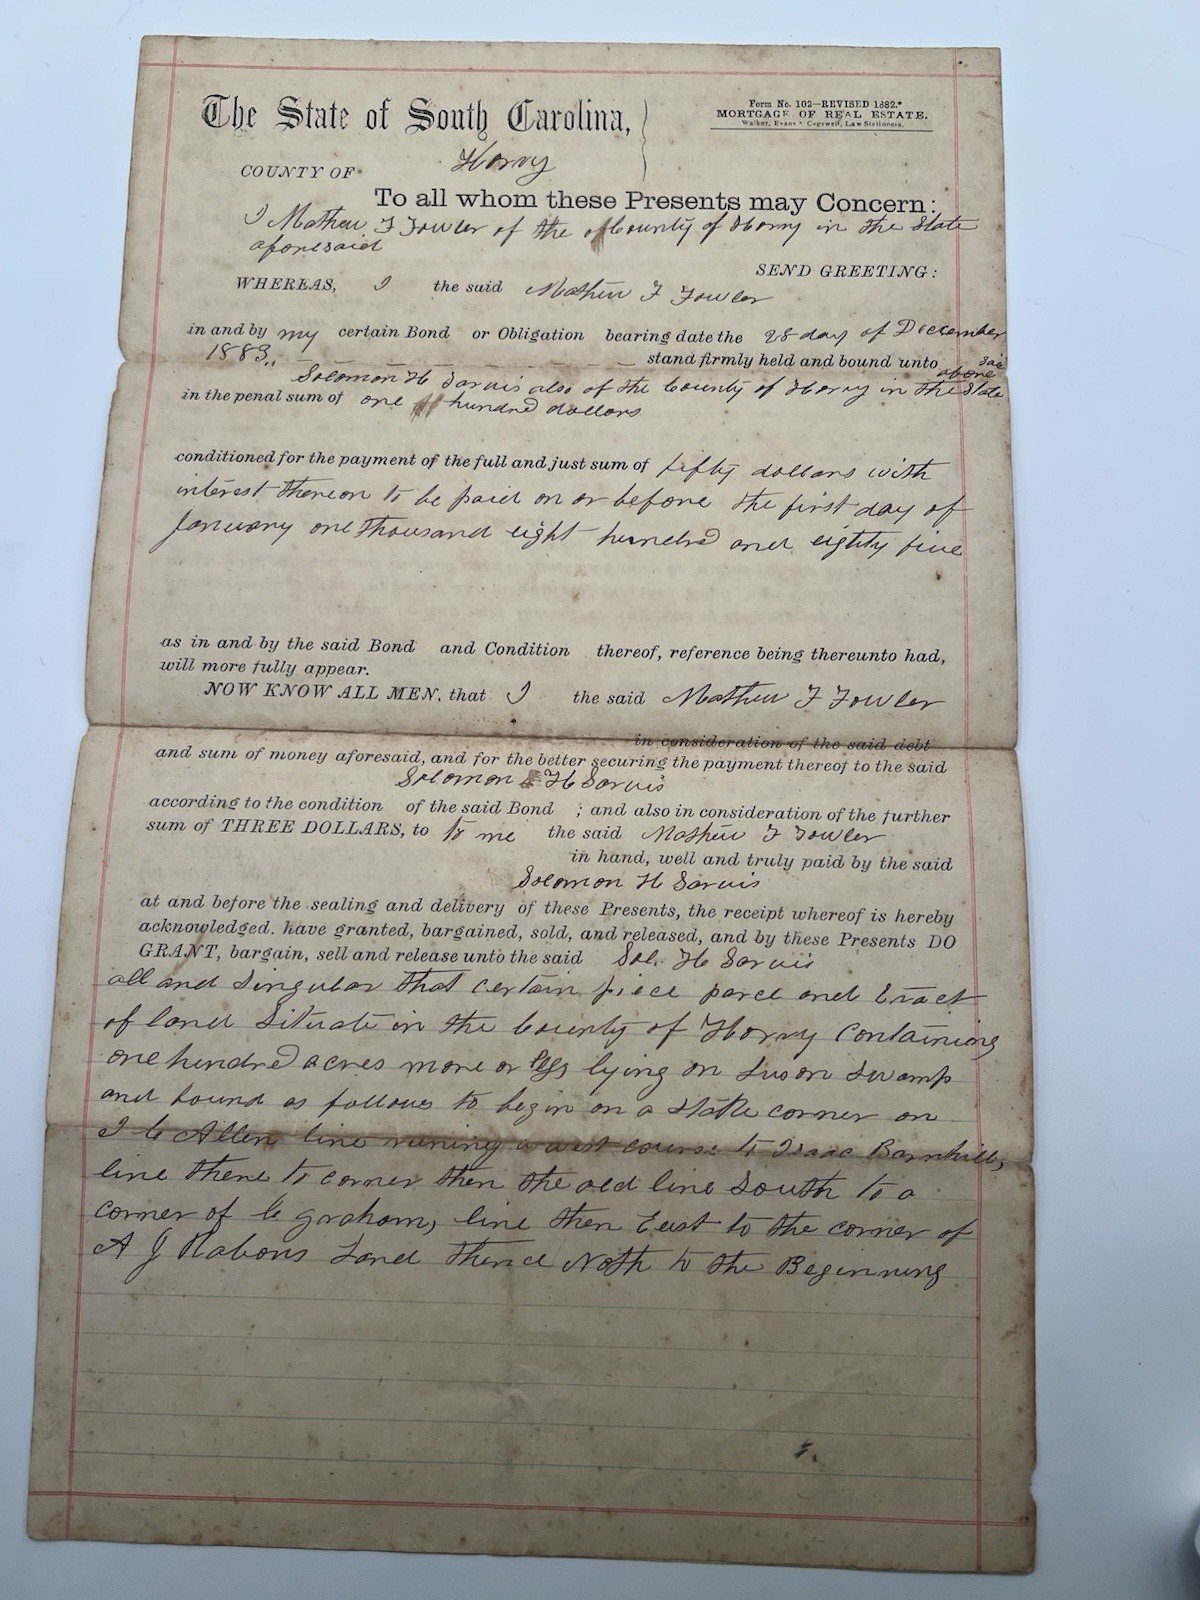 The State of South Carolina,
Form No. 102—REVISED 1882.
MORTGAGE OF REAL ESTATE.
Walker, Evans & Cogswell, Law Stationers.
COUNTY OF Horry
To all whom these Presents may Concern:
I Mathew F Fowler of the County of Horry in the State
aforesaid
SEND GREETING:
WHEREAS, I the said Mathew F Fowler
in and by my certain Bond or Obligation bearing date the 28 day of December
1883, stand firmly held and bound unto
Solomon H Sarvis also of the County of Horry in the State above
in the penal sum of one hundred dollars
conditioned for the payment of the full and just sum of fifty dollars with
interest thereon to be paid on or before the first day of
January one thousand eight hundred and eighty five
as in and by the said Bond and Condition thereof, reference being thereunto had,
will more fully appear.
NOW KNOW ALL MEN, that I the said Mathew F Fowler
in consideration of the said debt
and sum of money aforesaid, and for the better securing the payment thereof to the said
Solomon H Sarvis
according to the condition of the said Bond ; and also in consideration of the further
sum of THREE DOLLARS, to to me the said Mathew F Fowler
in hand, well and truly paid by the said
Solomon H Sarvis
at and before the sealing and delivery of these Presents, the receipt whereof is hereby
acknowledged, have granted, bargained, sold, and released, and by these Presents DO
GRANT, bargain, sell and release unto the said Sol. H Sarvis
all and Singular that certain piece parce and tract
of land Situate in the County of Horry Containing
one hundred acres more or less lying on Swamp
and bound as follows to begin on a stake corner on
Allen line runing a west course to Isaac Barnhill,
line thene to corner then the old line South to a
corner of C graham, line then East to the corner of
A J Rabons Land thence Noth to the Beginning